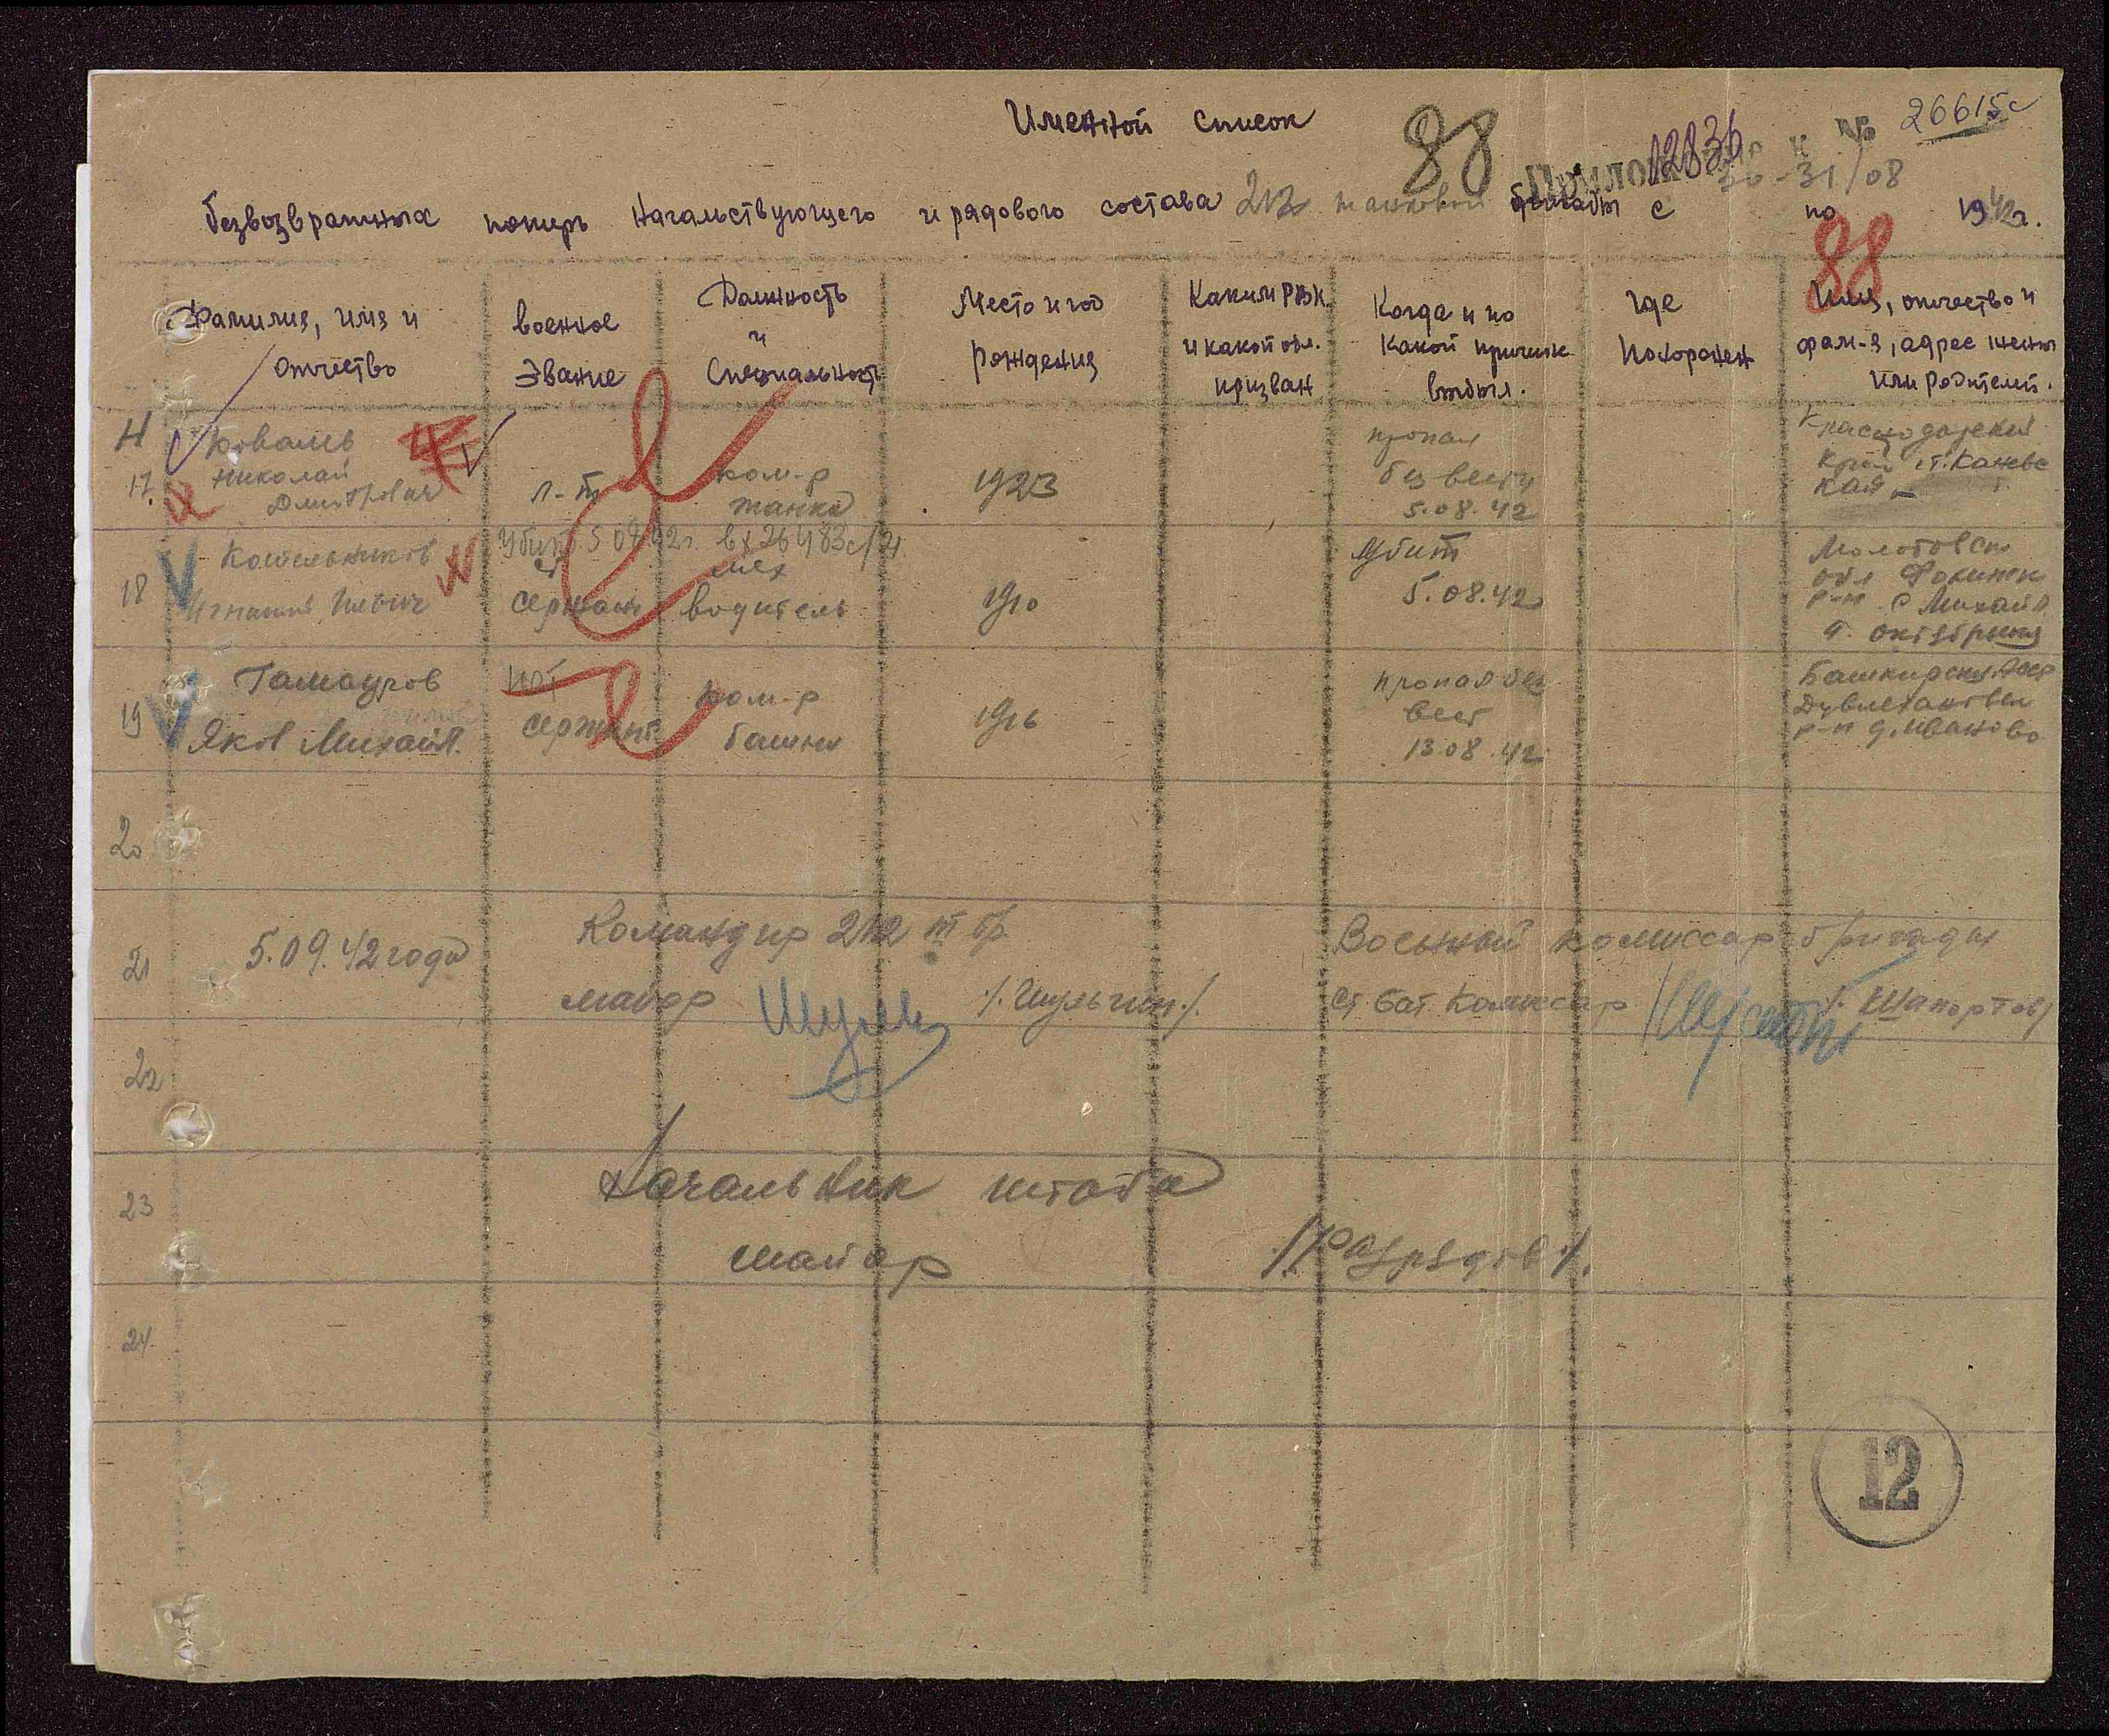 Именной список
88
12836
26615с
30-31/08
безвозвратных потерь начальствующего и рядового состава 212 танковой бригады с по 1942г.
88
Фамилия, имя и отчество
военное звание
Должность и специальность
Место и год рождения
Каким РВК и какой обл. призван
Когда и по какой причине выбыл.
где похоронен
Имя, отчество и фам-я, адрес жены или родителей.
17. Коваль Николай Дмитрович
л-т
ком-р танка
1923
пропал без вести 5.08.42
Краснодарский край ст. Каневс кая
Убит 5 08.42г. вх 26483с/
18 Котельников Игнатий Ильич
ст сержант
мех водитель
1910
убит 5.08.42
Молотовск обл Фокинск р-н с Михайл
19 Гамауров Яков Михайл.
сержант
ком-р башни
1916
пропал без вест 13.08.42
Башкирская АССР
р-н д. Иваново
20
21
5.09.42 года
Командир 212 т бр.
Военный комиссар бригады
майор
/.Шульгин./.
Ст. бат. Комиссар
22
23
Начальник штаба
майор
/.Разрядов./.
24
12